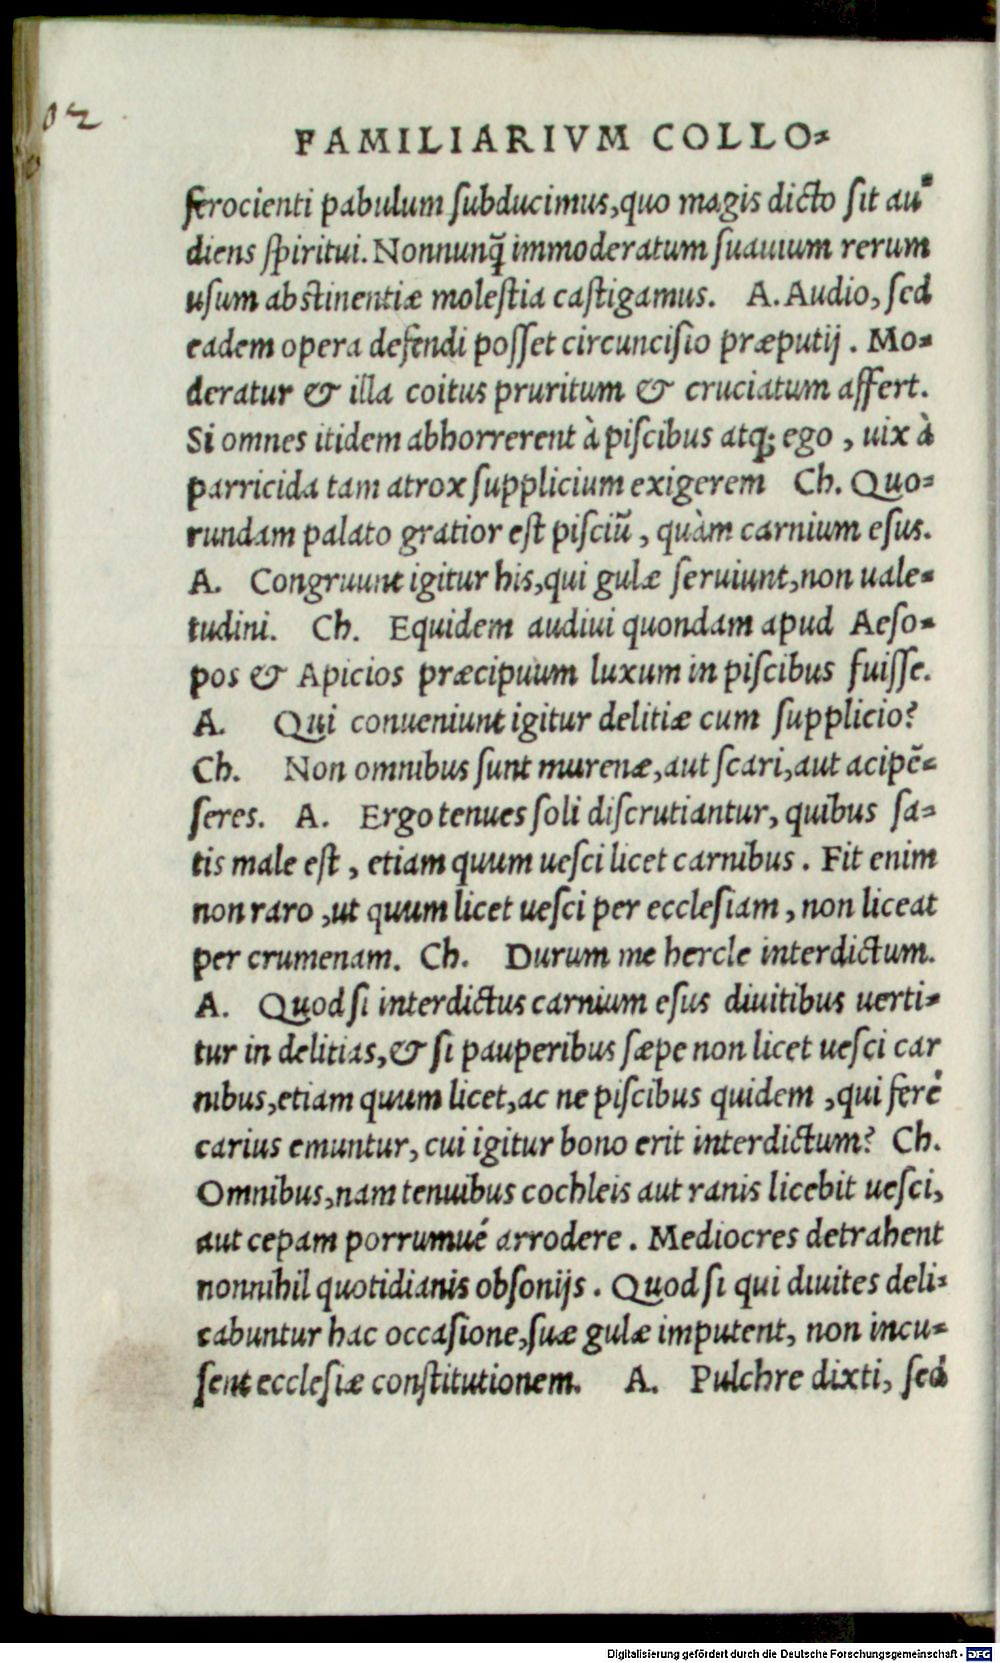 02
FAMILIARIVM COLLO-
ferocienti pabulum ſubducimus, quo magis dicto ſit au-
diens ſpiritui. Nonnunq̃ immoderatum ſuauium rerum
uſum abſtinentiæ moleſtia caſtigamus. A. Audio, ſed
eadem opera defendi poſſet circunciſio præputij. Mo-
deratur & illa coitus pruritum & cruciatum affert.
Si omnes itidem abhorrerent à piſcibus atq; ego, uix à
parricida tam atrox ſupplicium exigerem Ch. Quo-
rundam palato gratior eſt piſciũ, quàm carnium eſus.
A. Congruunt igitur his, qui gulæ ſeruiunt, non uale-
tudini. Ch. Equidem audiui quondam apud Aeſo-
pos & Apicios præcipuum luxum in piſcibus fuiſſe.
A. Qui conueniunt igitur delitiæ cum ſupplicio?
Ch. Non omnibus ſunt murenæ, aut ſcari, aut acipē-
ſeres. A. Ergo tenues ſoli diſcrutiantur, quibus ſa-
tis male eſt, etiam quum ueſci licet carnibus. Fit enim
non raro, ut quum licet ueſci per eccleſiam, non liceat
per crumenam. Ch. Durum me hercle interdictum.
A. Quod ſi interdictus carnium eſus diuitibus uerti-
tur in delitias, & ſi pauperibus ſæpe non licet ueſci car
nibus, etiam quum licet, ac ne piſcibus quidem, qui ferè
carius emuntur, cui igitur bono erit interdictum? Ch.
Omnibus, nam tenuibus cochleis aut ranis licebit ueſci,
aut cepam porrumué arrodere. Mediocres detrahent
nonnihil quotidianis obſonijs. Quod ſi qui diuites deli-
cabuntur hac occaſione, ſuæ gulæ imputent, non incu-
ſent eccleſiæ conſtitutionem. A. Pulchre dixti, ſed
Digitalisierung gefördert durch die Deutsche Forschungsgemeinschaft - DFG